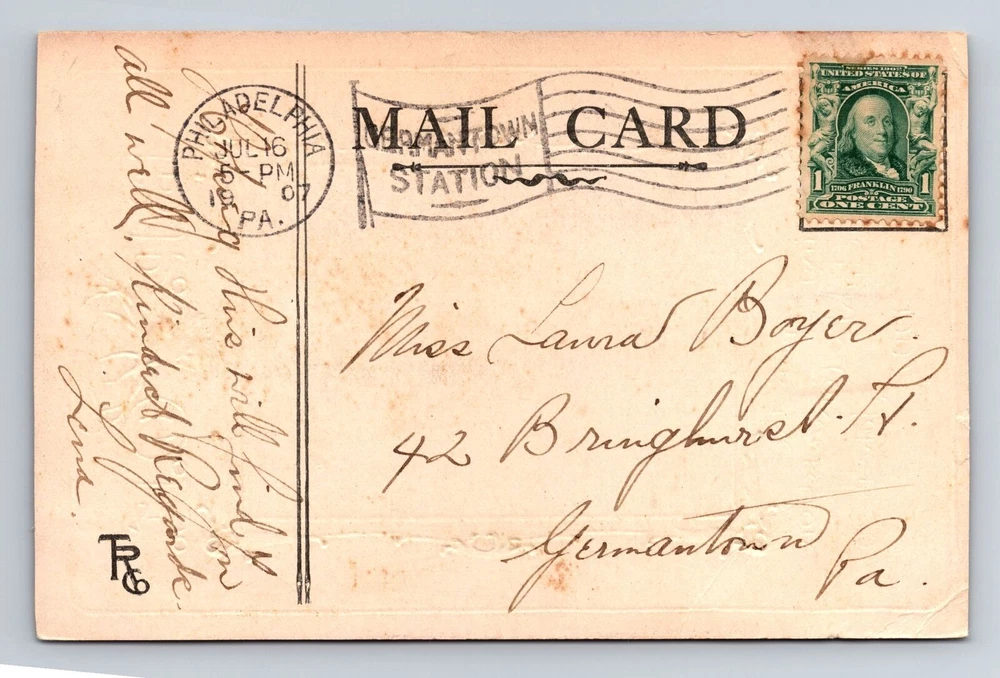 MAIL CARD
PHILADELPHIA
JUL 16
5 - PM
19 07
PA.
GERMANTOWN
STATION
SERIES 1902
UNITED STATES OF
AMERICA
1 1
1706 FRANKLIN 1790
POSTAGE
ONE CENT
Miss Laura Boyer.
42 Bringhurst St.
Germantown
Pa.
Hoping this will find
you
all well. Kindest Regards
Lena.
TRG